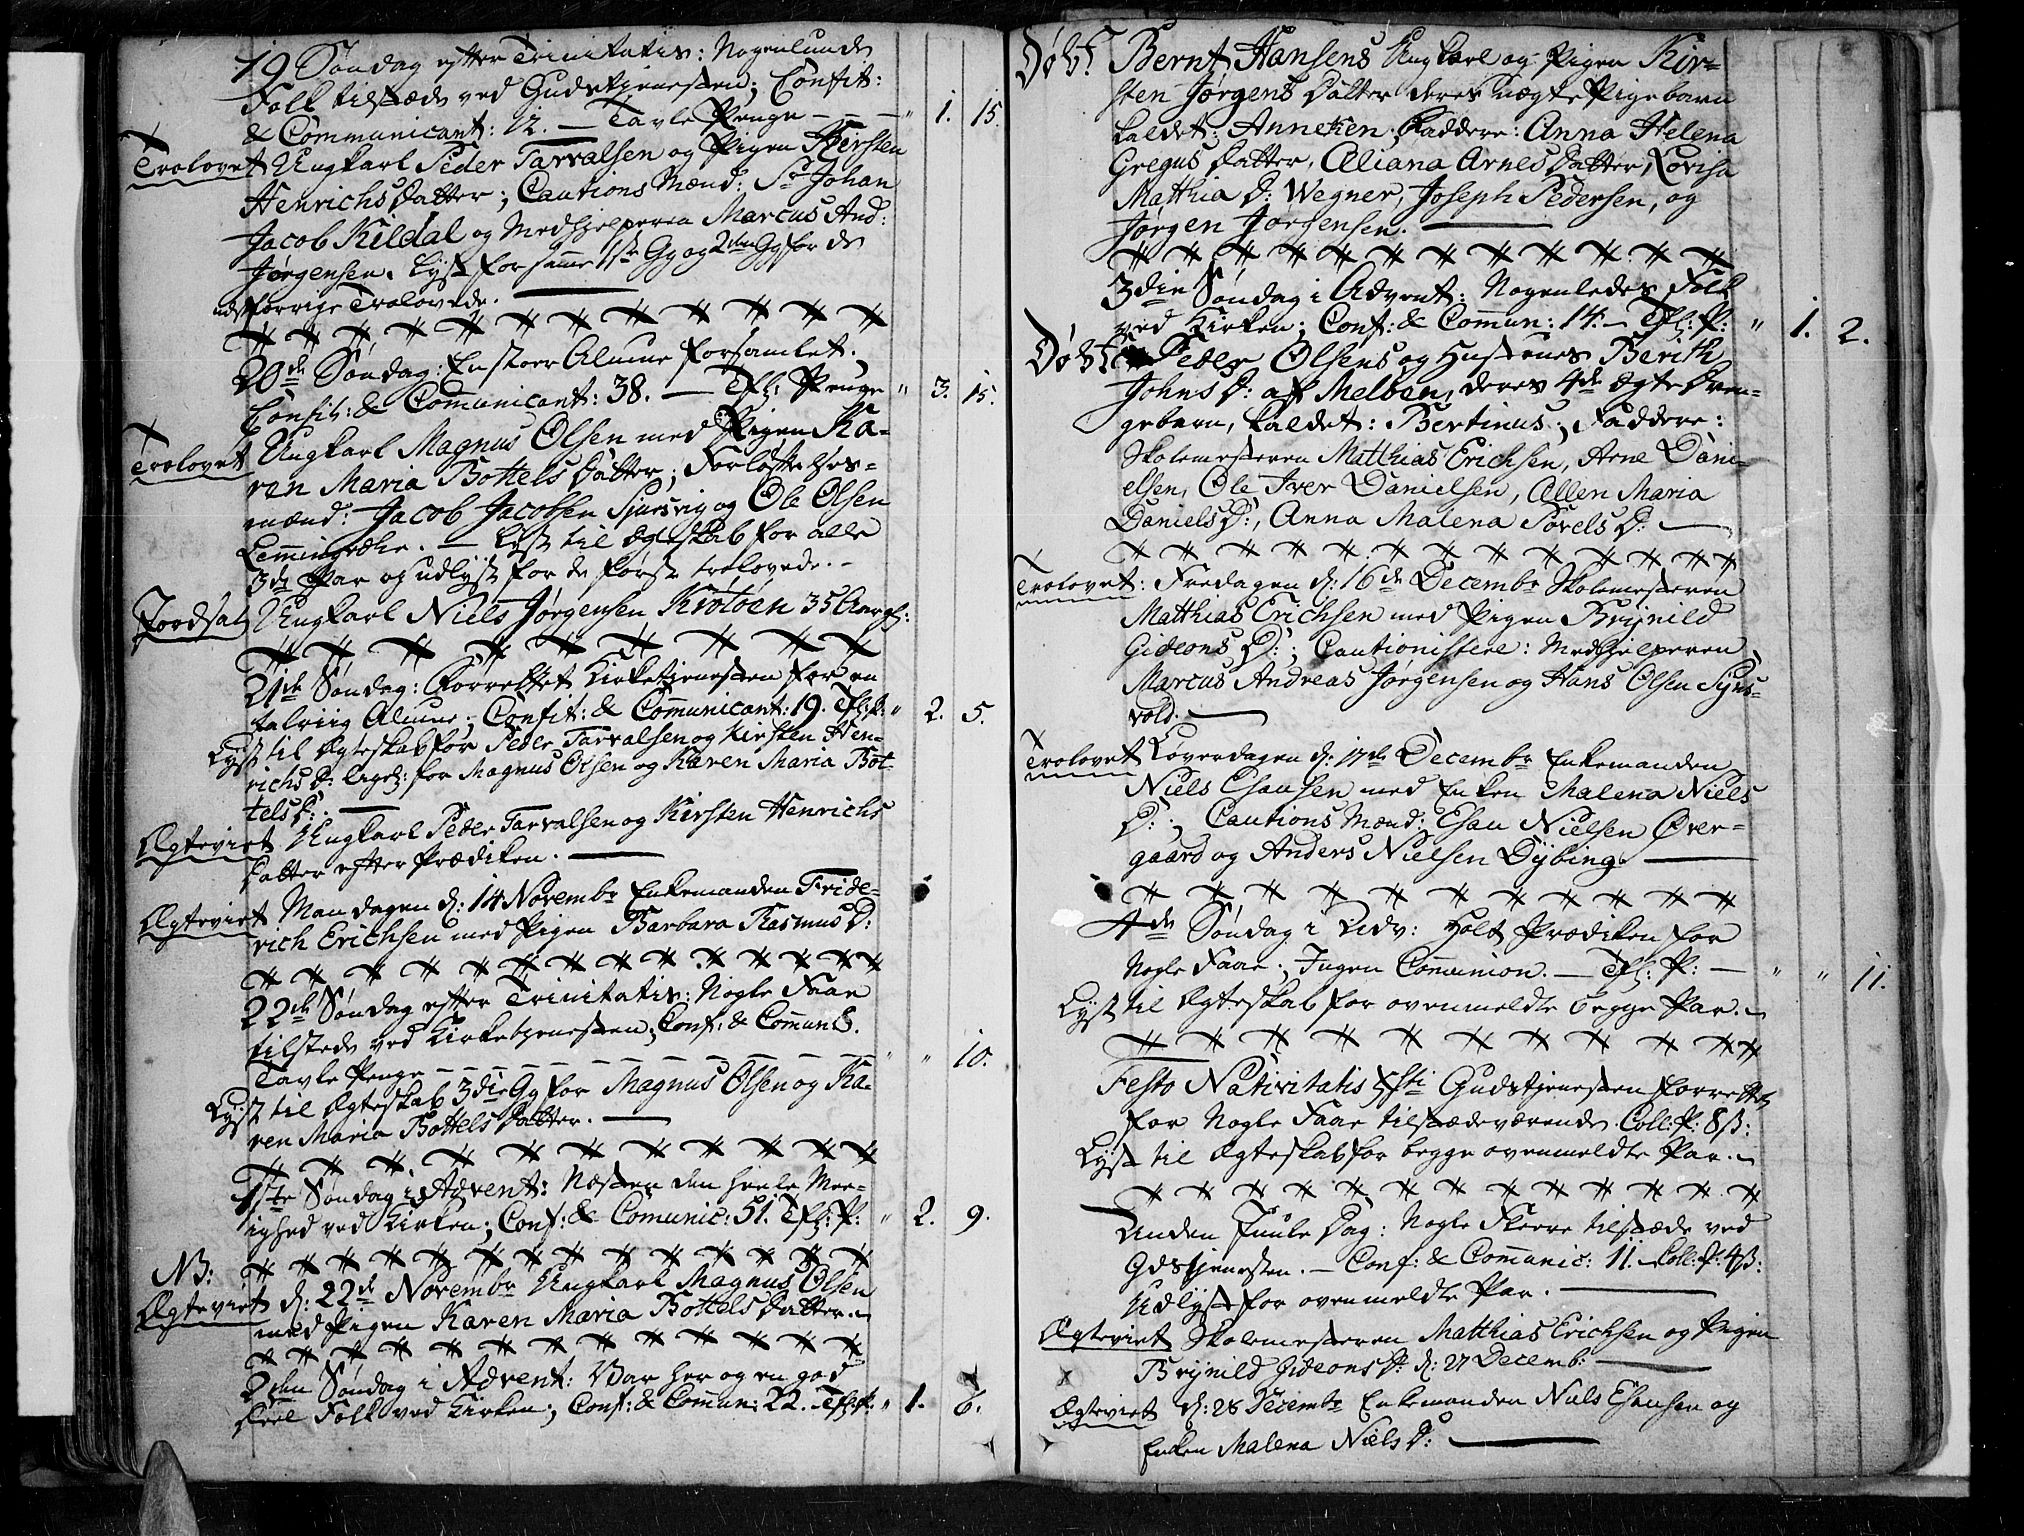 19 Søndag efter Trinitatis: Nogenlunde
Folk tilstæde ved Gudstienesten; Confit:
& Communicant: 12. — Tavle Penge — — " 1. 15.
Trolovet Ungkarl Peder Tarralsen og Pigen Kirsten
Henrichs Datter; Cautions Mænd: Sr Johan
Jacob Kildal og Medhjelperen Marcus And:
Jørgensen. Lyst for samme 1ste Gg og 2den Gg for de
forrige Trolovede.
20de Søndag: En stoor Almue forsamlet.
Confit: & Communicant: 38. — Tfl: Penge " 3. 15.
Trolovet Ungkarl Magnus Olsen med Pigen Ka-
ren Maria Bottels Datter; Forløftelses-
mænd: Jacob Jacobsen Sjursvig og Ole Olsen
— Lyst til Ægteskab for alle
3de Par og udlyst for de først trolovede. —
Jordsat Ungkarl Niels Jørgensen Krøtøen 35 Aar gl:
21de Søndag: Forrettet Kirketienesten for en
talriig Almue; Confit: & Communicant: 19. Tfl: P: " 2. 5.
Lyst til Ægteskab for Peder Tarralsen og Kirsten Hen-
richs D: ligel: for Magnus Olsen og Karen Maria Bot-
tels D:. —
Ægteviet Ungkarl Peder Tarralsen og Kirsten Henrichs
Datter efter Prædiken. —
Ægteviet Mandagen d: 14 Novembr Enkemanden Fride-
rich Erichsen med Pigen Barbara Rasmus D:
22de Søndag efter Trinitatis: Nogle Faae
tilstede ved Kirketjenesten; Conf: & Commun
Tavle Penge — — — " " 10.
Lyst til Ægteskab 3die Gg for Magnus Olsen og Ka-
ren Maria Bottels Datter. —
1ste Søndag i Advent: Næsten den heele Me-
nighed ved Kirken; Conf: & Comunic: 51. Tfl: P: " 2. 9.
NB:
Ægteviet d: 22de Novembr Ungkarl Magnus Olsen
med Pigen Karen Maria Bottels Datter. —
2den Søndag i Advent: Var her og en god
Deel Folk ved Kirken; Conf: & Commun: 22. Tfl: P: " 1. 6.
Døbt Bernt Hansens Ungkarl og Pigen Kir-
sten Jørgens Datter deres uægte Pigebarn
kaldet: Anneken; Faddere: Anna Helena
Gregus Datter, Æliana Arnes Datter, Lovisa
Matthia D: Wegner, Joseph Pedersen, og
Jørgen Jørgensen. —
3die Søndag i Advent: Nogenledes Folk
ved Kirken; Conf: & Commun: 14. — Tfl: P: " 1. 2.
Døbt Peder Olsens og Hustrues Berith
Johns D: aff Melben, deres 4de ægte Dren-
gebarn, kaldet: Bertinus; Faddere:
Skolemesteren Matthias Erichsen, Arne Dani-
elsen, Ole Iver Danielsen, Ællen Maria
Daniels D:, Anna Malena Povels D: —
Trolovet: Fredagen d: 16de Decembr Skolemesteren
Matthias Erichsen med Pigen Brynild
Gideons D:; Cautionistere: Medhjelperen
Marcus Andreas Jørgensen og Hans Olsen Sÿns-
vold. —
Trolovet Løverdagen d: 17de Decembr Enkemanden
Niels Esausen med Enken Malena Niels
D:; Cautions Mænd: Esau Nielsen Øver-
gaard og Anders Nielsen Dÿbing. —
4de Søndag i Adv: Holt Prædiken for
Nogle Faae; Ingen Communion. — Tfl: P: — " " 11.
Lyst til Ægteskab for ovenmeldte begge Par. —
Festo Nativitatis Xsti Gudstjenesten forrettet
for Nogle Faae tilstædeværende. Coll: P: 8ß:
Lyst til Ægteskab for begge ovenmeldte Par. —
Anden Juule Dag: Nogle Fleere tilstæde ved
Gdstjenesten. — Conf: & Communic: 11. — Coll: P: 4ß:
Udlyst for ovenmeldte Par. —
Ægteviet Skolemesteren Matthias Erichsen og Pigen
Brÿnild Gideons D: d: 27 Decemb: —
Ægteviet d: 28 Decembr Enkemanden Niels Esausen og
Enken Malena Niels D: —